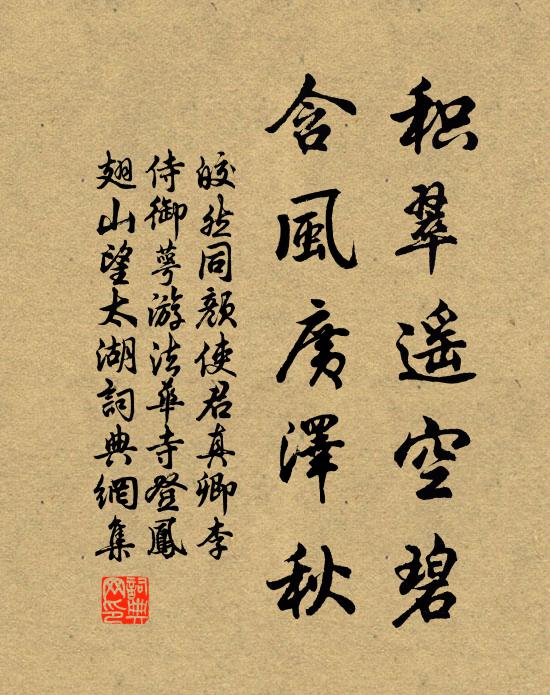 积翠遥空碧
含風廣澤秋
皎然同顔使君真卿李
侍御萼游法華寺登鳳
翅山望太湖詞典網集
詞典
网印